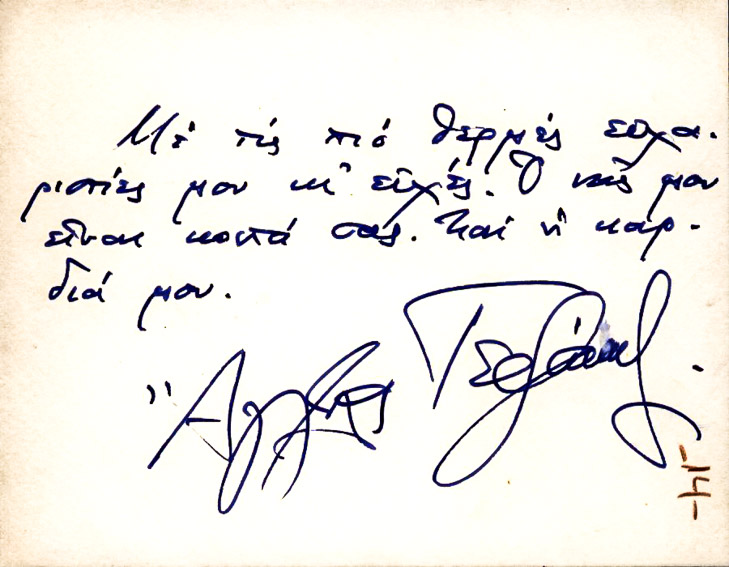 Μὲ τὶς πιὸ θερμὲς εὐχα-
ριστίες μου κι' εὐχές. Ὁ νοῦς μου
εἶναι κοντά σας. Καὶ ἡ καρ-
διά μου.
Ἄγγελος Τερζάκης.
-14-